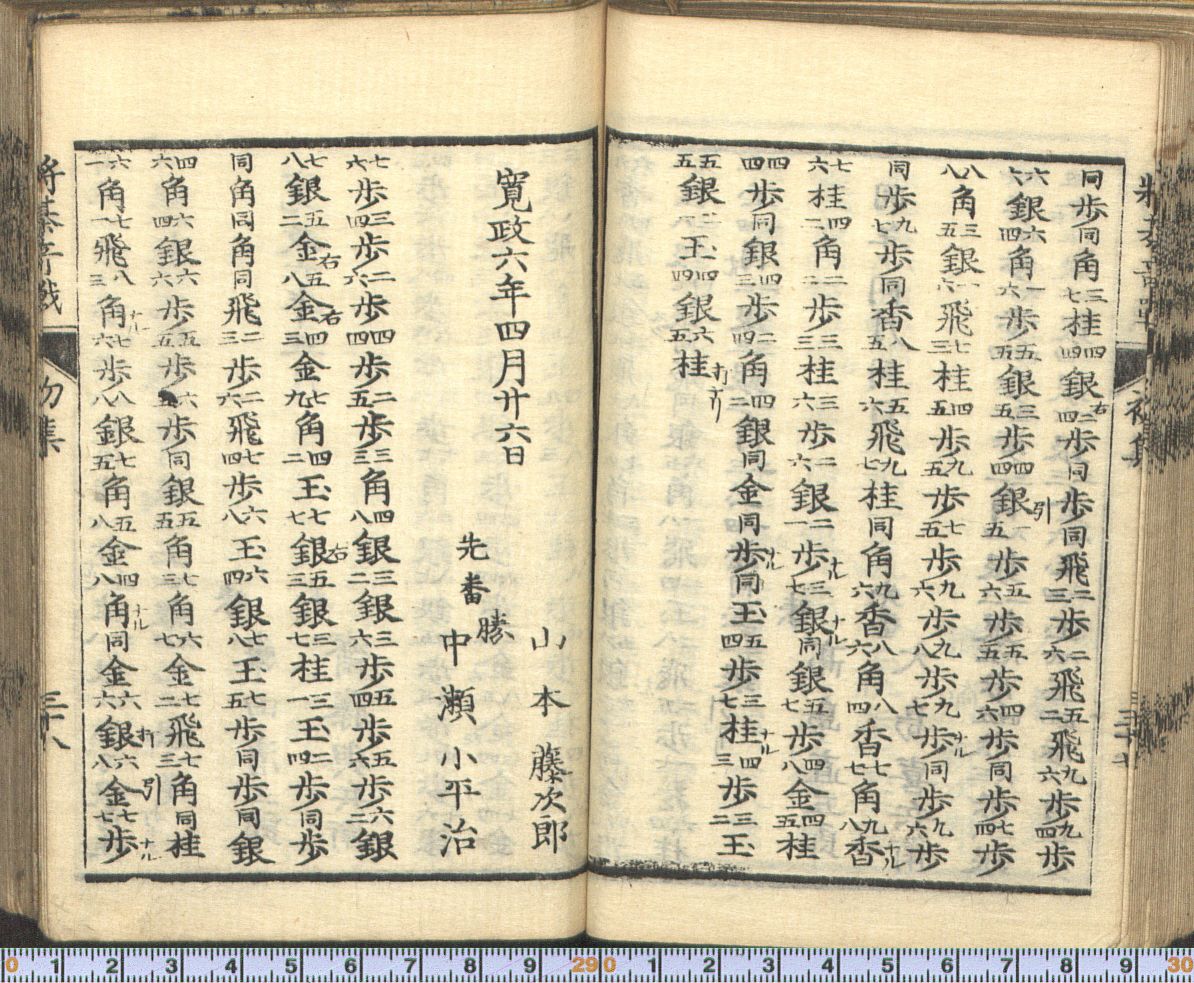 同歩同角三七桂四四銀右二四歩同歩同飛二三歩二六飛五二飛九六歩九四歩
六六銀六四角一六歩五五銀三五歩四四銀引五歩五六歩五五歩四六歩同歩七四歩
八八角三五銀一六飛七三桂四五歩九五歩七五歩九六歩九八歩九七歩ナル同歩九六歩
同歩九七歩同香八五桂五七飛九七桂同角九六香八六角八四香七七角九八香ナル
七六桂四二角二二歩三三桂三六歩二六銀二一歩ナル三七銀ナル同銀五七歩四八金四五桂
四四歩同銀四三歩四二角四二銀同金同歩ナル同玉五四歩三七桂ナル四三歩三二玉
五五銀三二玉四四銀六五桂打
寛政六年四月廿六日
山本藤次郎
先番勝中瀬小平治
七六歩三四歩二六歩四四歩二五歩三三角四八銀三二銀三六歩五四歩五六歩六二銀
七八銀五二金右五八金右四三金七九角四二玉七七銀右五三銀三七桂三一玉二四歩同歩
同角同角同飛二三歩二六飛七四歩六八玉六四銀七八玉七五歩同歩同銀
四六角六四銀六六歩五五歩六五歩同銀五五角七三角六七金二七飛七三角同桂
六一角七一飛八三角ナル七六歩八八銀七五角五八金四八角ナル同金六六銀打六八金引七七歩ナル
初集
三十八